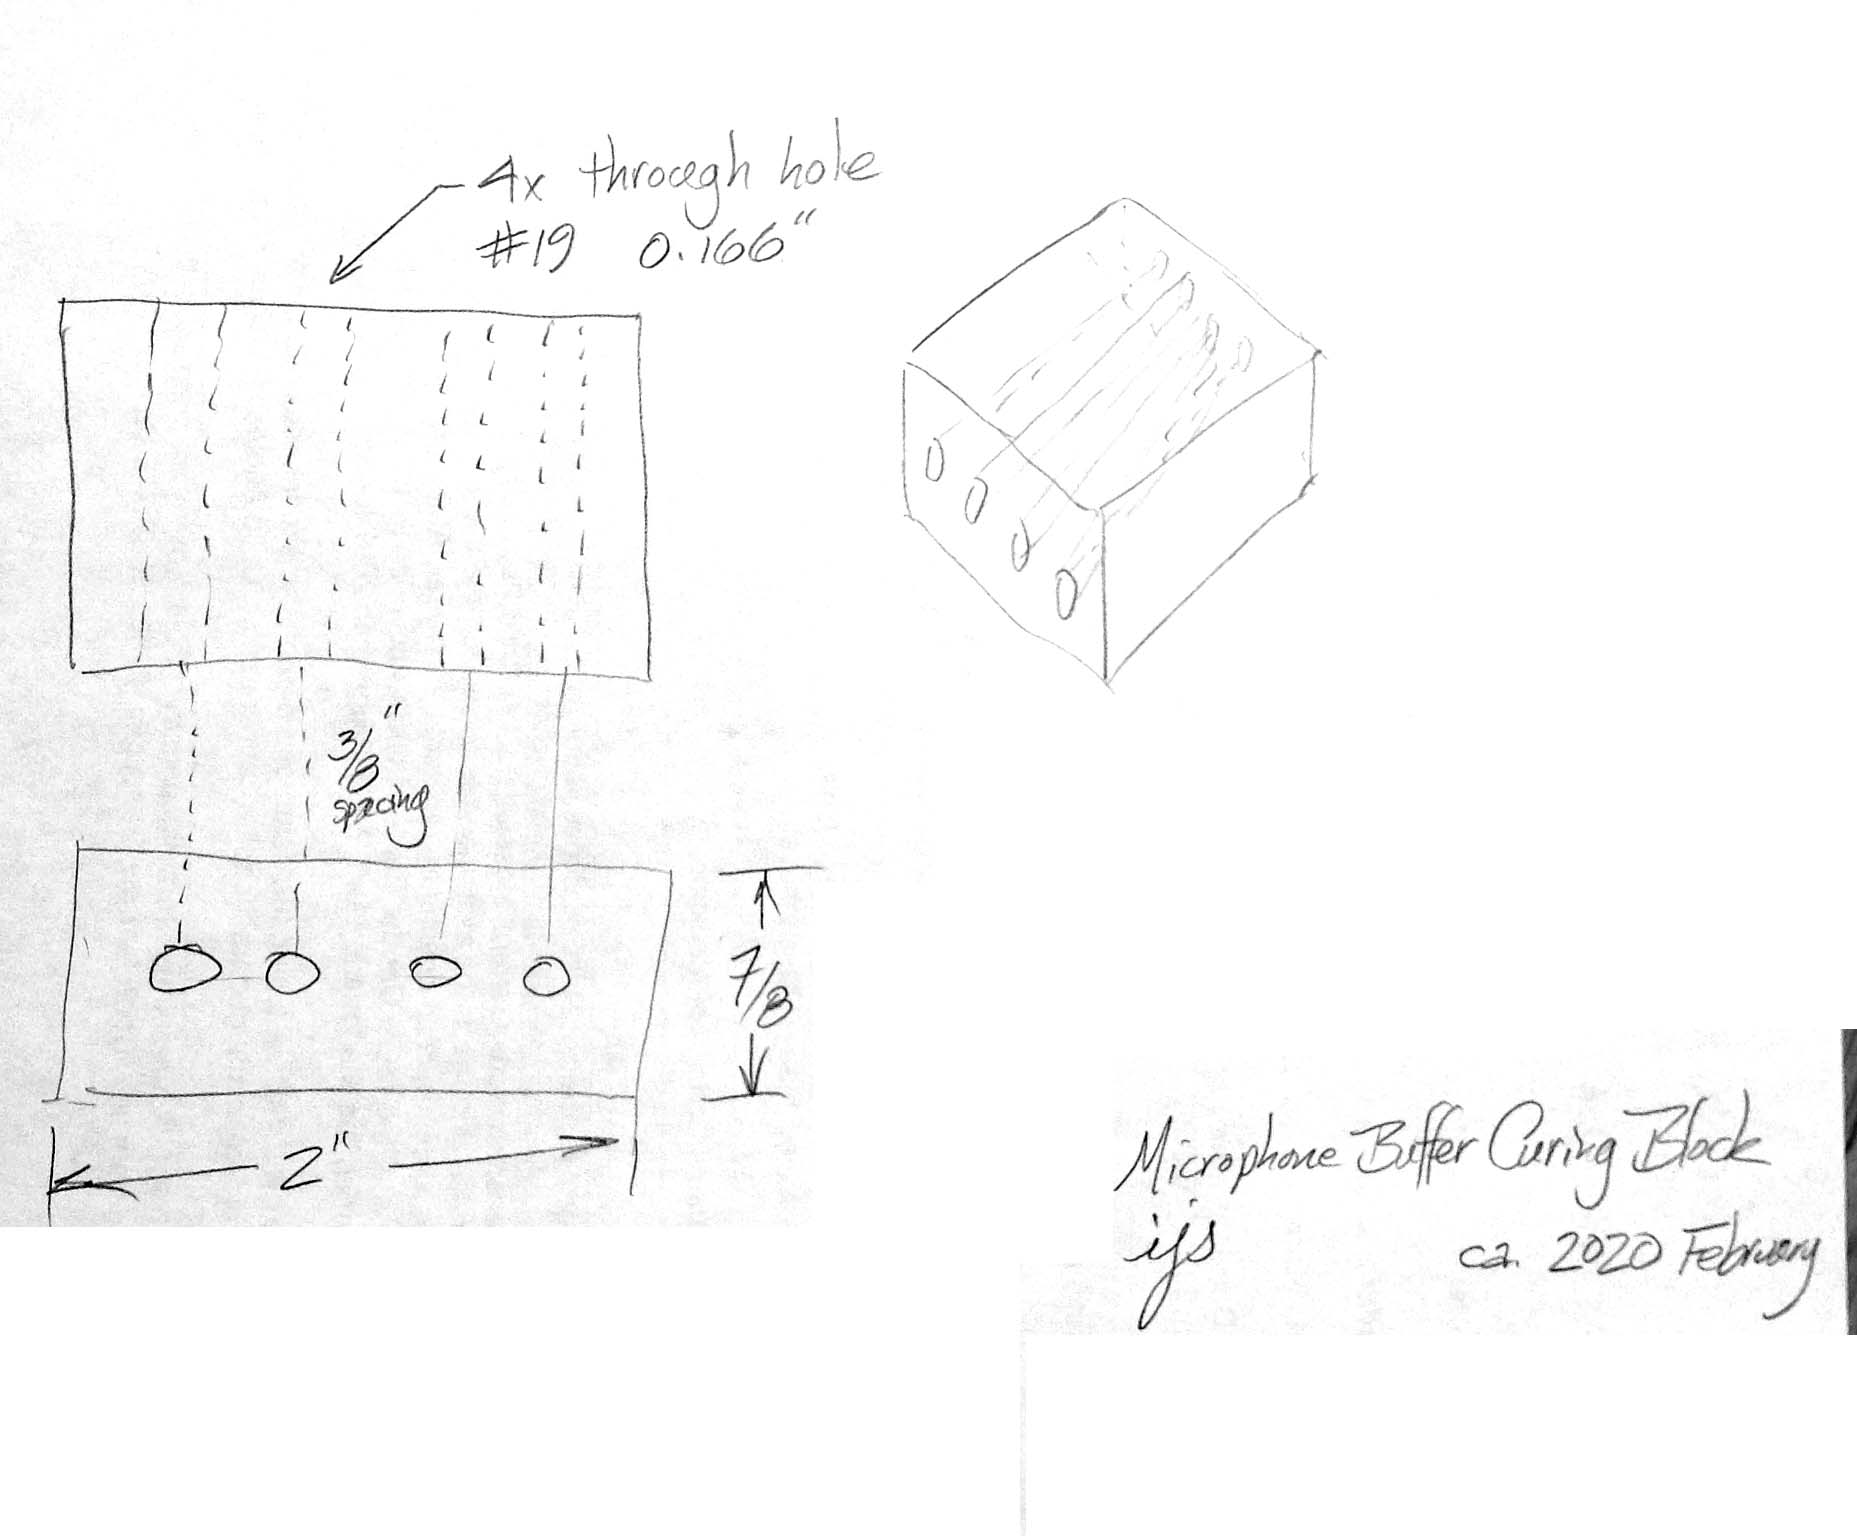 4x through hole
#19 0.166"
3/8"
spacing
7/8
2"
Microphone Buffer Curing Block
ijs
ca. 2020 February